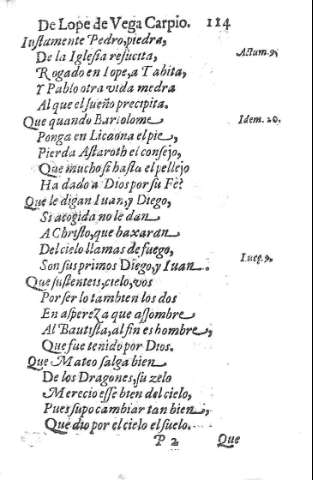 De Lope de Vega Carpio. 114
Iustamente Pedro, piedra,
De la Iglesia resucita, Actum. 9.
Rogado en Iope, a Tabita,
Y Pablo otra vida medra
Al que el sueño precipita.
Que quando Bartolome Idem. 20.
Ponga en Licaona el pie,
Pierda Astaroth el consejo,
Que mucho si hasta el pellejo
Ha dado a Dios por su Fe?
Que le digan Iuan, y Diego,
Si acogida no le dan
A Christo, que baxaran
Del cielo llamas de fuego,
Son sus primos Diego, y Iuan. Luc. 9.
Que sustenteis, cielo, vos
Por ser lo tambien los dos
En aspereza que assombre
Al Bautista, al fin es hombre,
Que fue tenido por Dios.
Que Mateo salga bien
De los Dragones, su zelo
Merecio esse bien del cielo,
Pues supo cambiar tan bien,
Que dio por el cielo el suelo.
P 2 Que